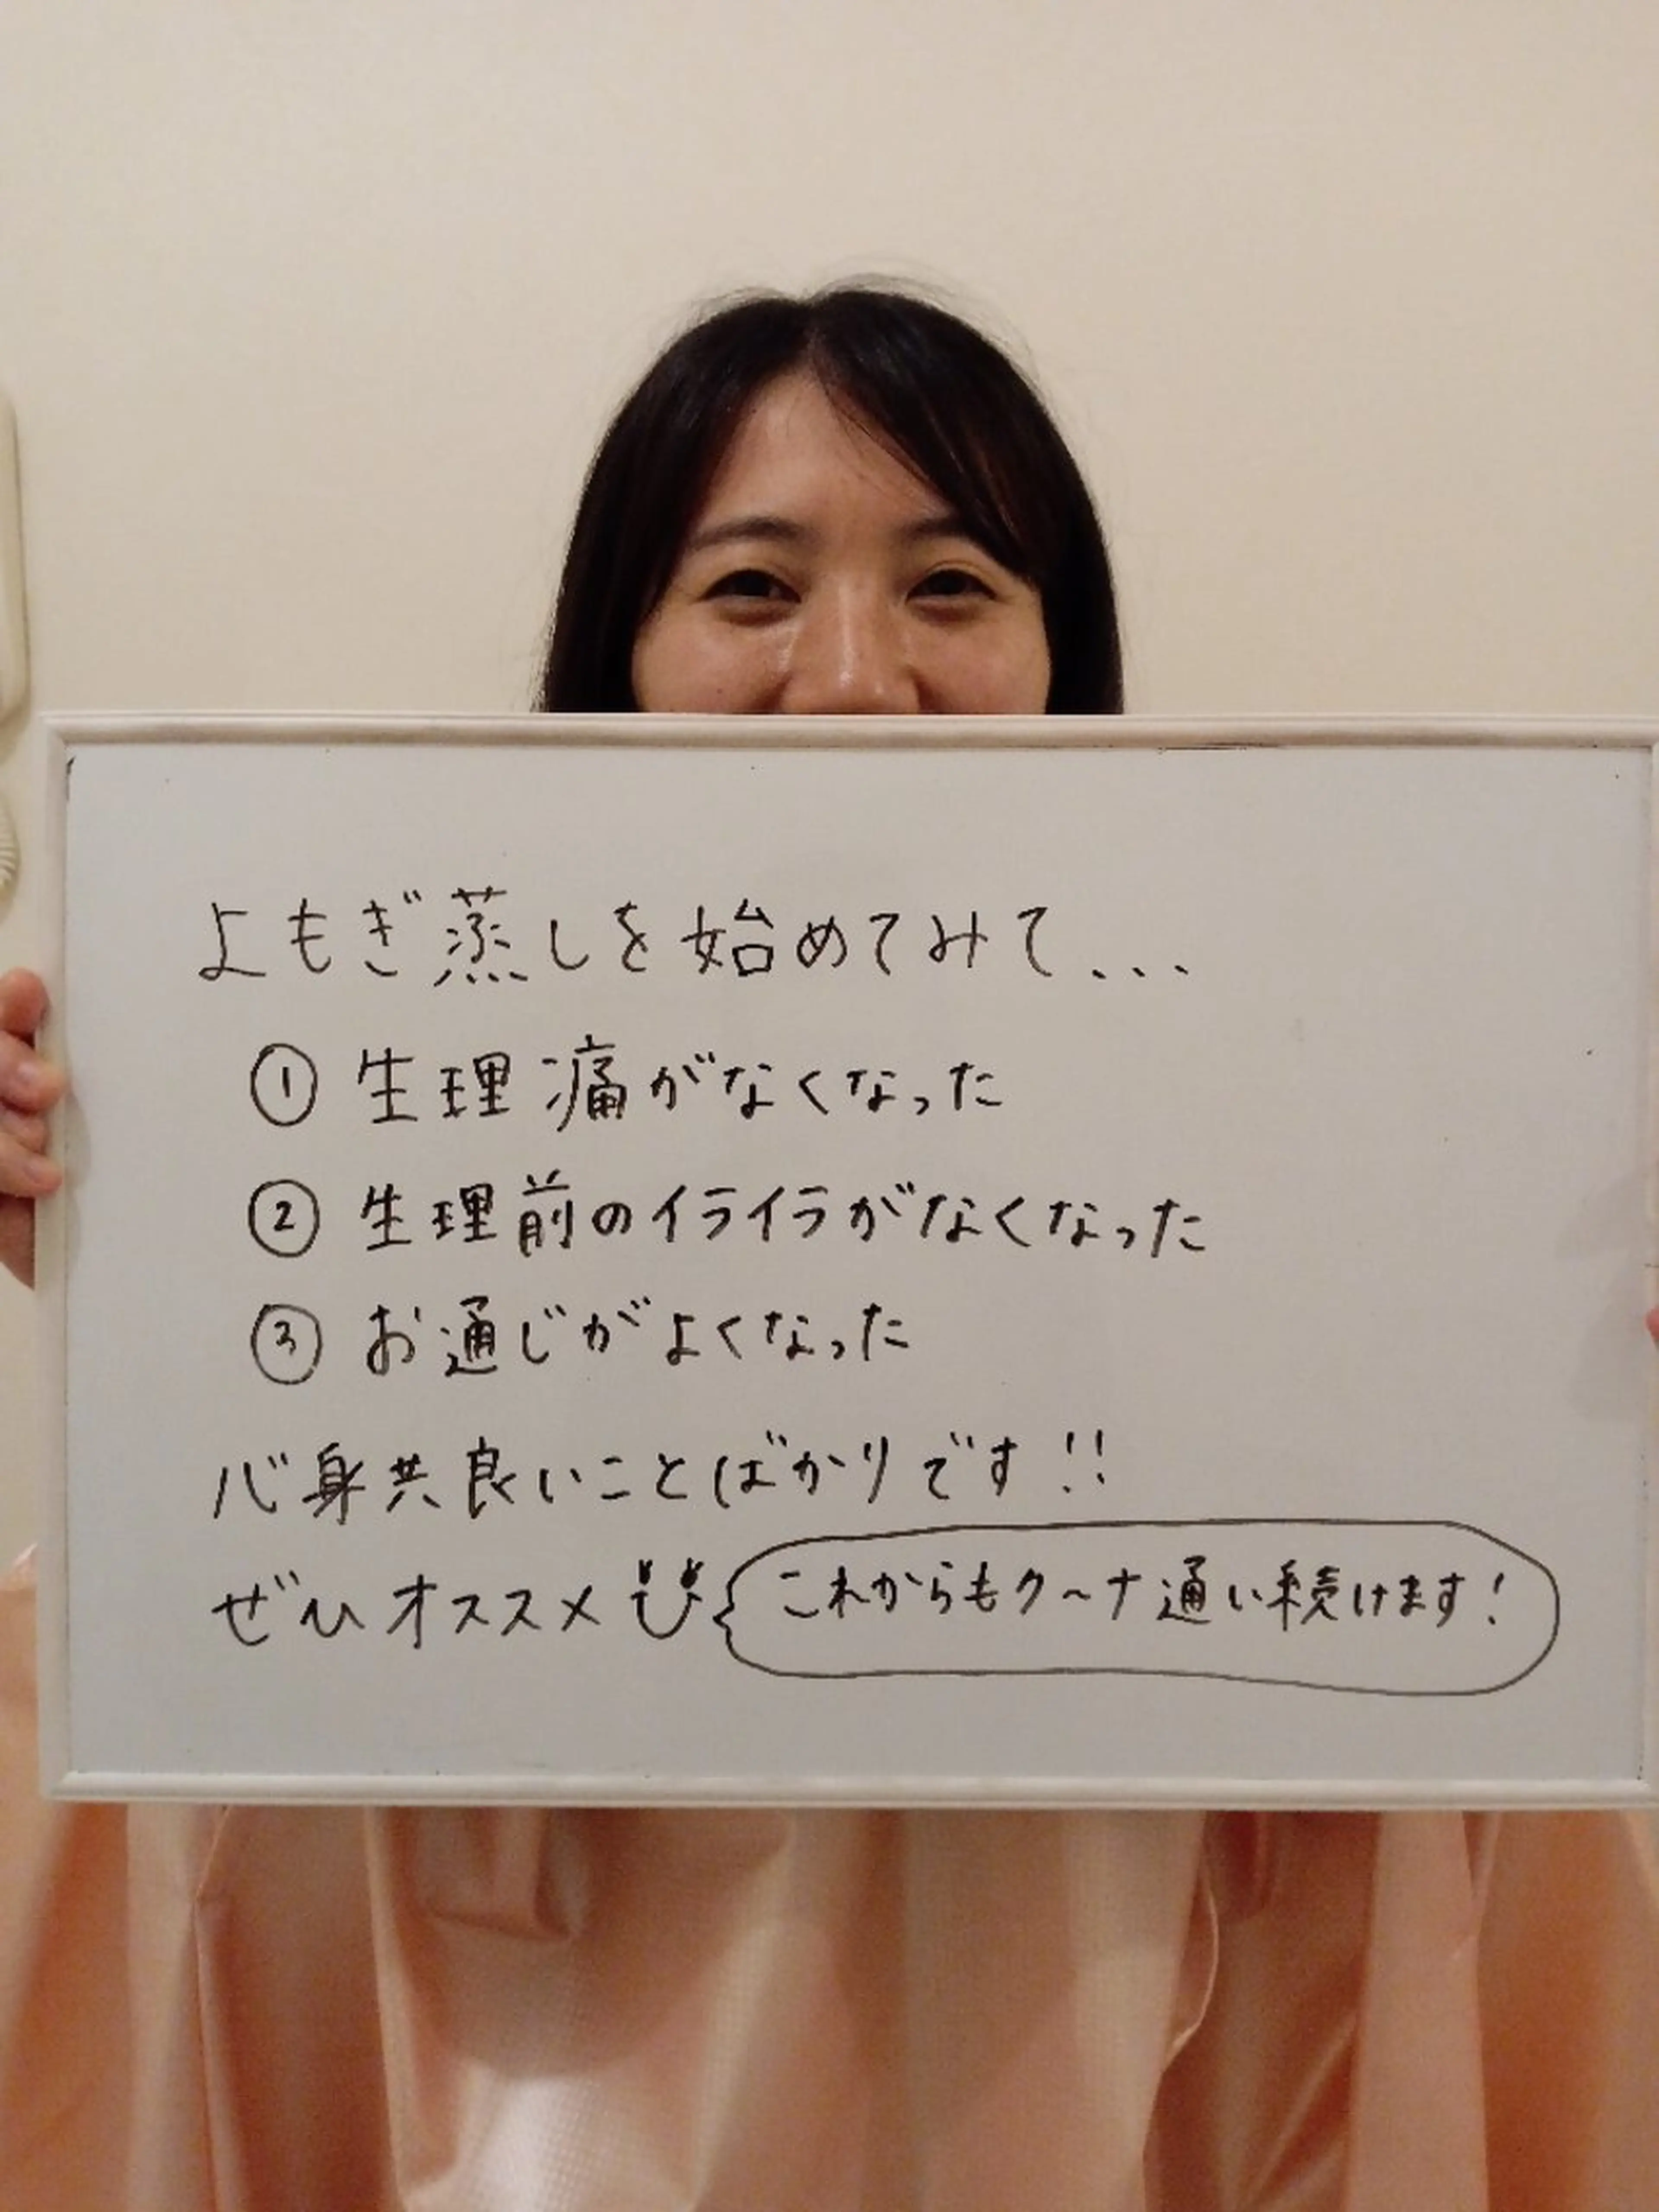 よもぎ蒸しを始めてみて...
① 生理痛がなくなった
② 生理前のイライラがなくなった
③ お通じがよくなった
心身共良いことばかりです!!
ぜひオススメ
これからもクーナ通い続けます!